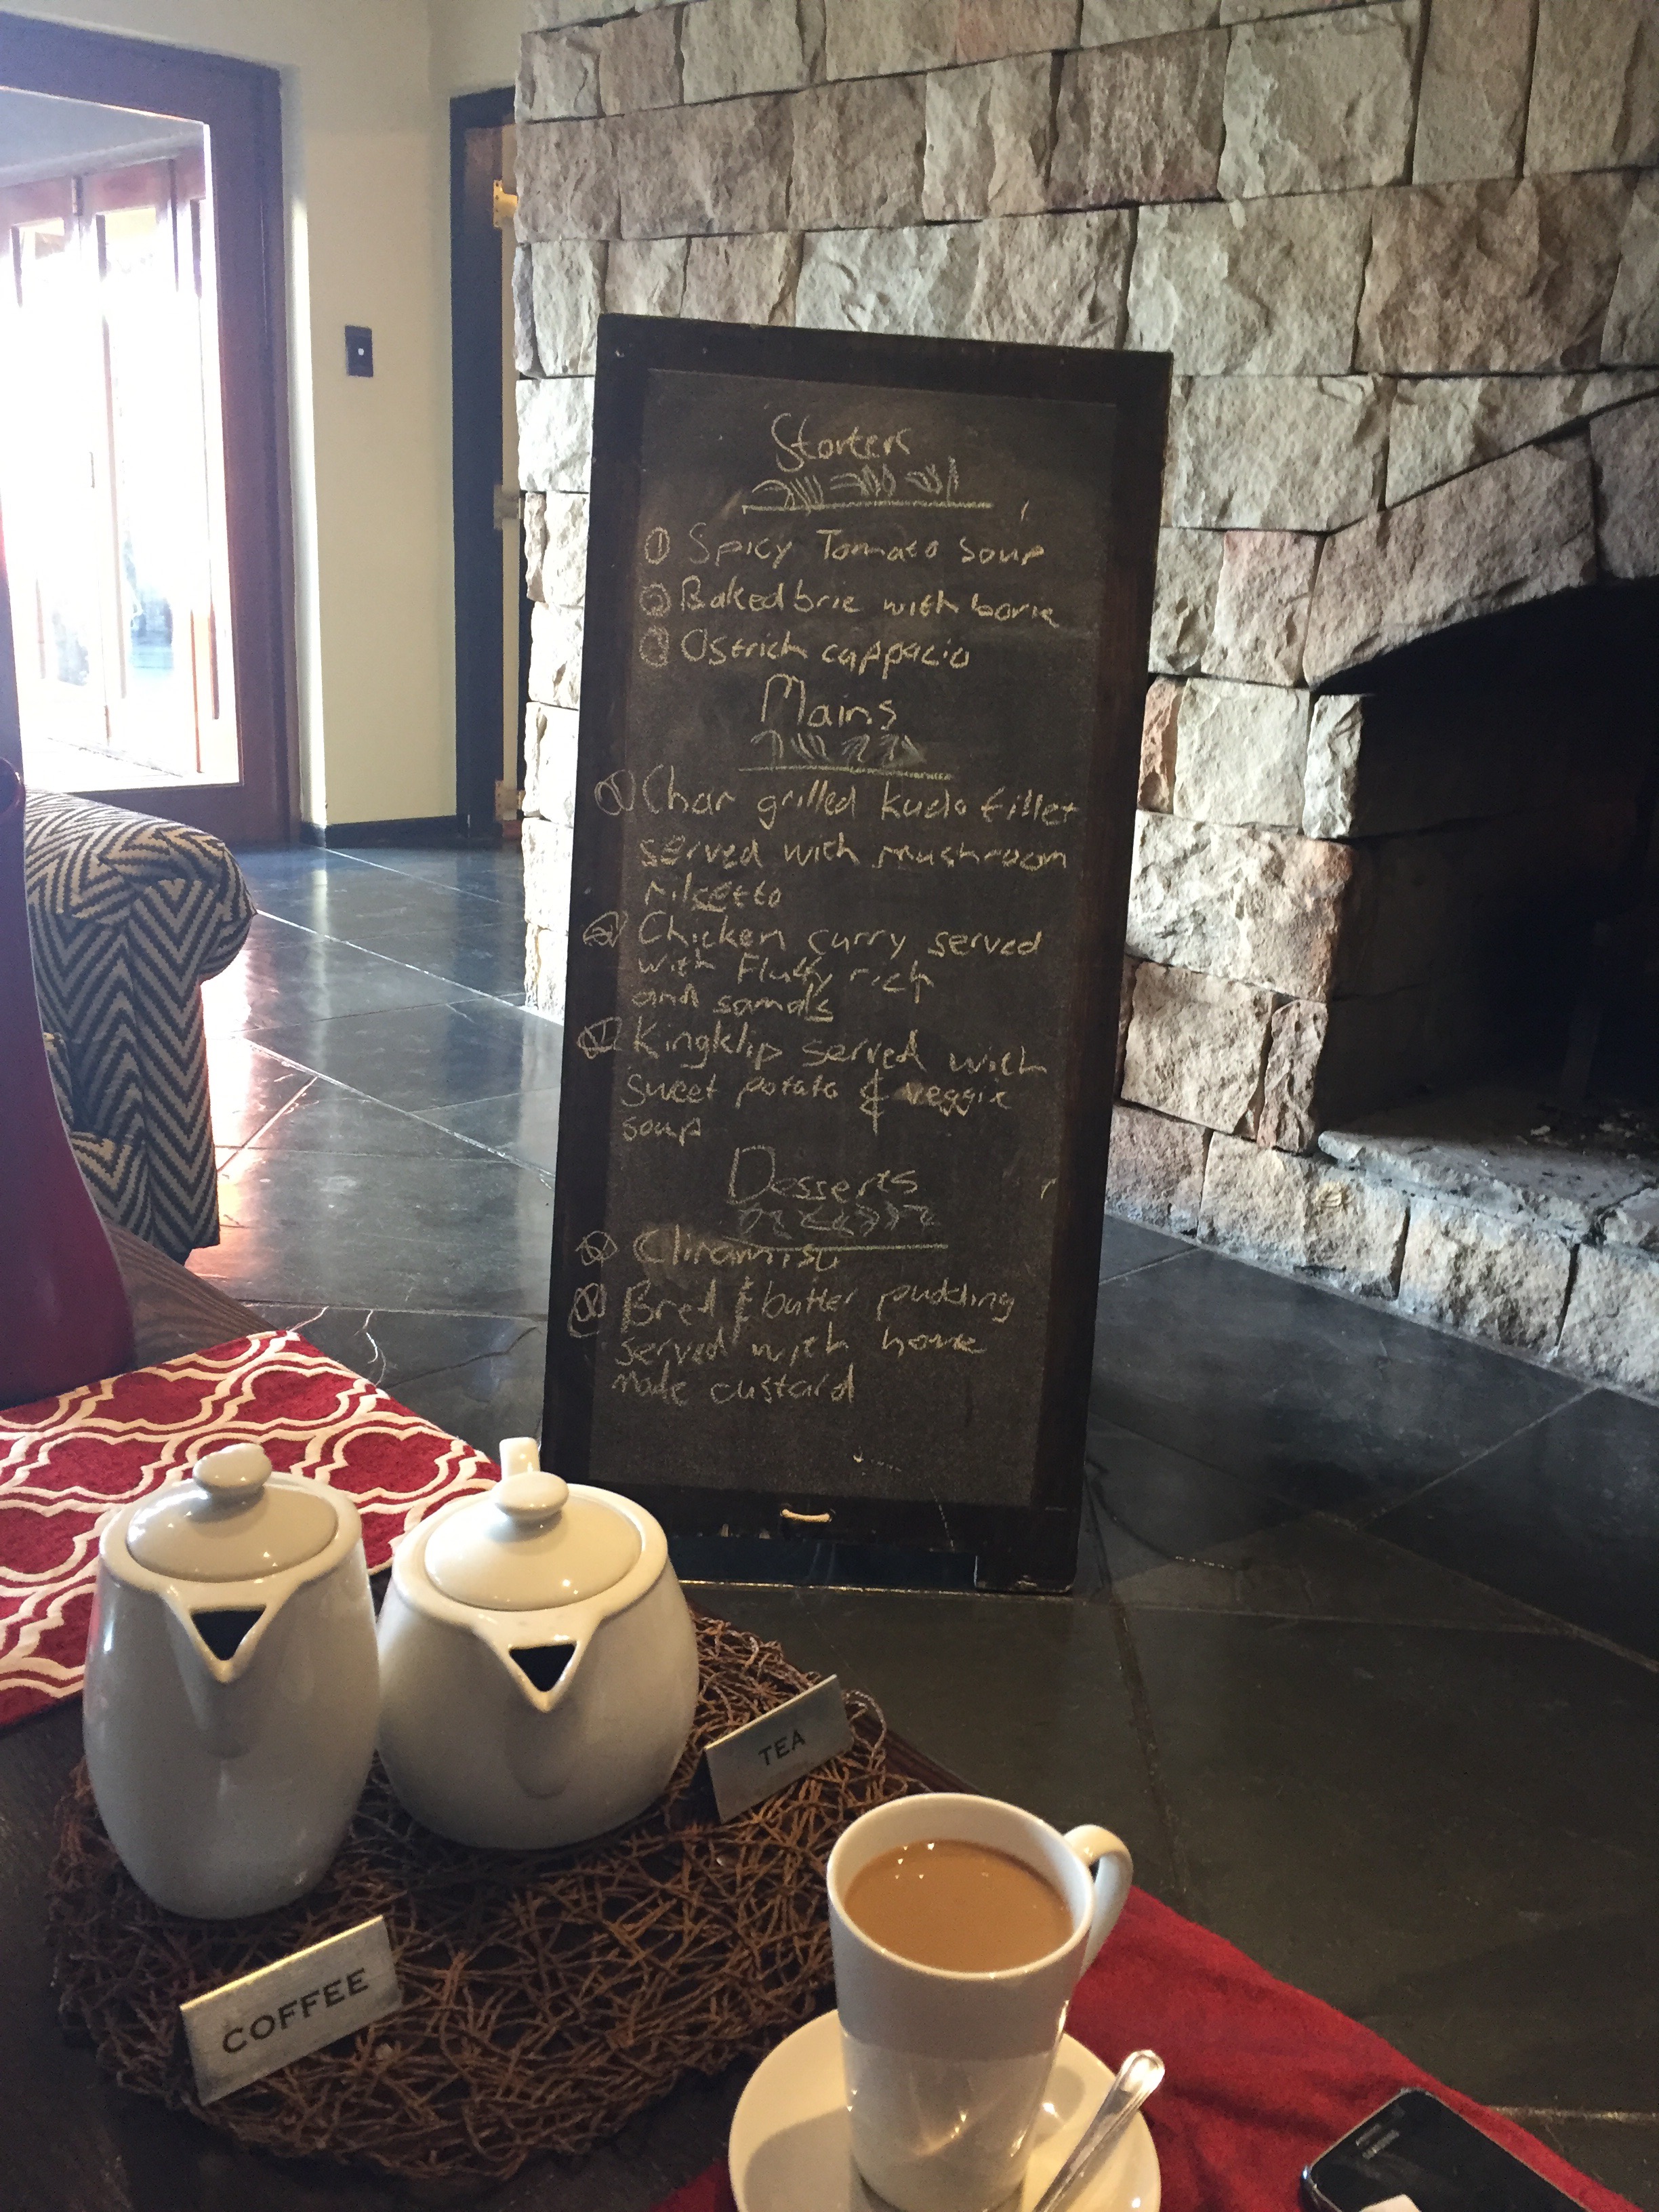 Starters
① Spicy Tomato Soup
② Baked brie with borie
③ Ostrich cappacio
Mains
① Char grilled kudo fillet
served with mushroom
② Chicken curry served
with Fluffy rich
and samals
Kingklip served with
Sweet potato & veggie
soup
Desserts
Cliramisu
Bred & butter pudding
served with home
made custard
TEA
COFFEE
SAMSUNG